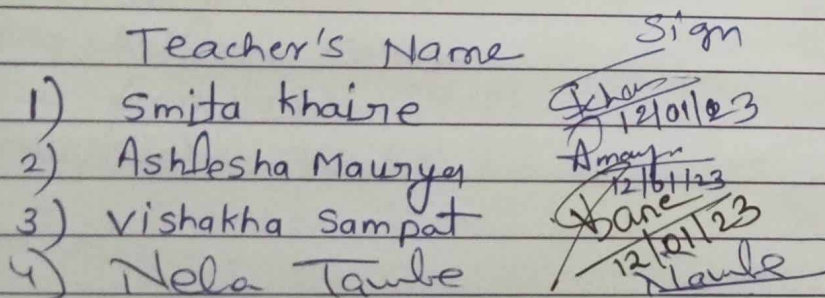 Teacher's Name Sign
1) Smita Khaire
12/01/23
2) Ashlesha Maurya
12/01/23
3) Vishakha Sampat
12/01/23
4) Nela Tambe